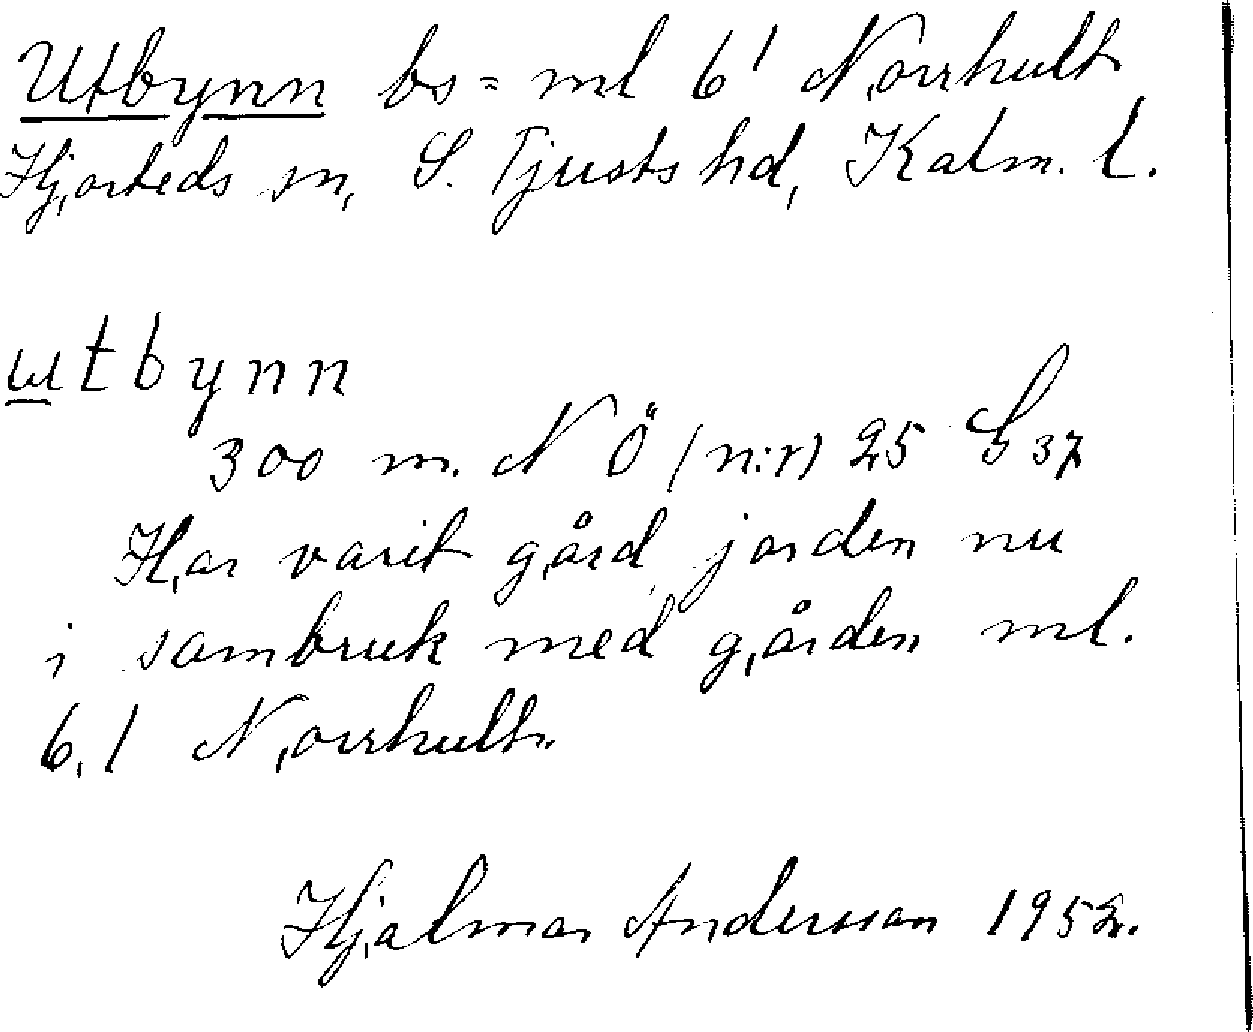 Utbynn bs = ml 6¹ Norrhult
Hjorteds sn, S. Tjusts hd, Kalm. l.
utbynn
300 m. NÖ (n:r) 25 S 37
Har varit gård, jorden nu
i sambruk med gården ml.
6,1 Norrhult.
Hjalmar Andersson 1952.